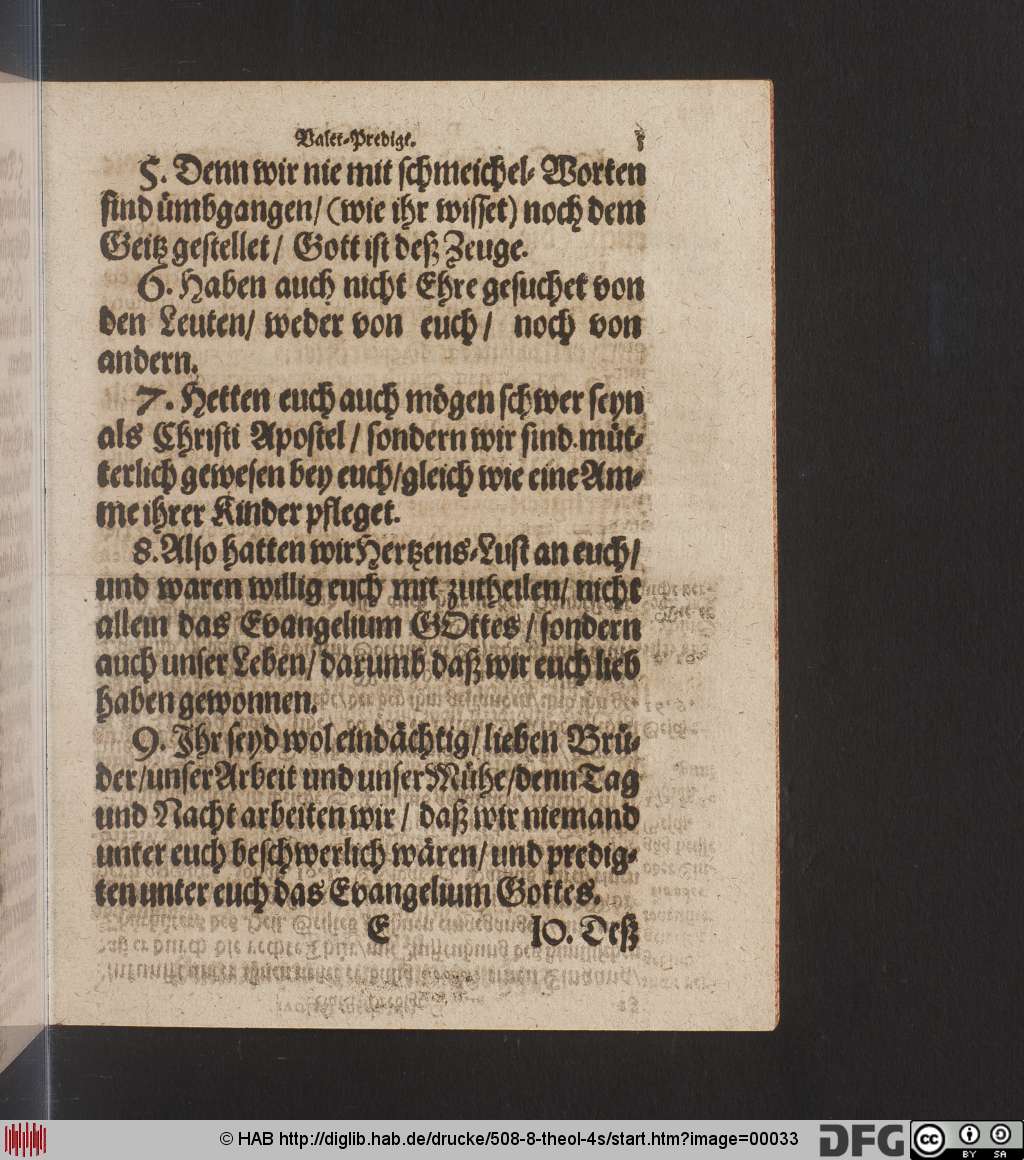 Valet-Predigt.
5. Denn wir nie mit schmeichel- Worten
sind ümbgangen/ (wie ihr wisset) noch dem
Geitz gestellet/ Gott ist deß Zeuge.
6. Haben auch nicht Ehre gesuchet von
den Leuten/ weder von euch/ noch von
andern.
7. Hetten euch auch mögen schwer seyn
als Christi Apostel/ sondern wir sind müt-
terlich gewesen bey euch/ gleich wie eine Am-
me ihrer Kinder pfleget.
8. Also hatten wir Hertzens-Lust an euch/
und waren willig euch mit zutheilen/ nicht
allein das Evangelium GOttes/ sondern
auch unser Leben/ darumb daß wir euch lieb
haben gewonnen.
9. Ihr seyd wol eindächtig/ lieben Brü-
der/ unser Arbeit und unser Mühe/ denn Tag
und Nacht arbeiten wir/ daß wir niemand
unter euch beschwerlich wären/ und predig-
ten unter euch das Evangelium Gottes.
E 10. Deß
© HAB http://diglib.hab.de/drucke/508-8-theol-4s/start.htm?image=00033
DFG
cc BY SA